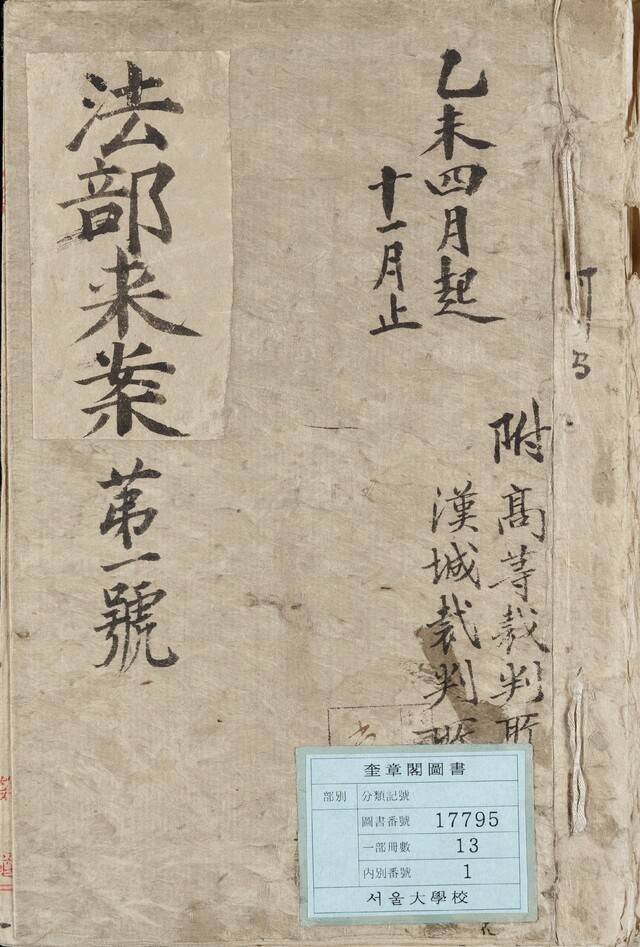 乙未四月起
十一月止
附 高等裁判所
漢城裁判所
法部来案 第一號
奎章閣圖書
部別
分類記號
圖書番號 17795
一部冊數 13
內別番號 1
서울大學校